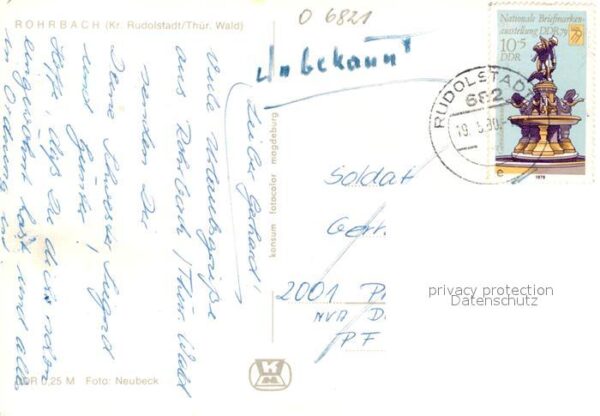 ROHRBACH (Kr. Rudolstadt/Thür. Wald)
O 6821
Unbekannt
Nationale Briefmarken-
ausstellung DDR 79
10+5
DDR
1979
RUDOLSTADT
682
e
Lieber Gerhard!
Viele Urlaubsgrüße
aus Rohrbach / Thür. Wald
senden Dir
Deine Schwester
und Günter!
Hoffe, daß Du dich schon
eingewöhnt hast und alles
in Ordnung ist
konsum fotocolor magdeburg
Soldat
2001
NVA
PF
privacy protection
Datenschutz
DDR 0,25 M Foto: Neubeck